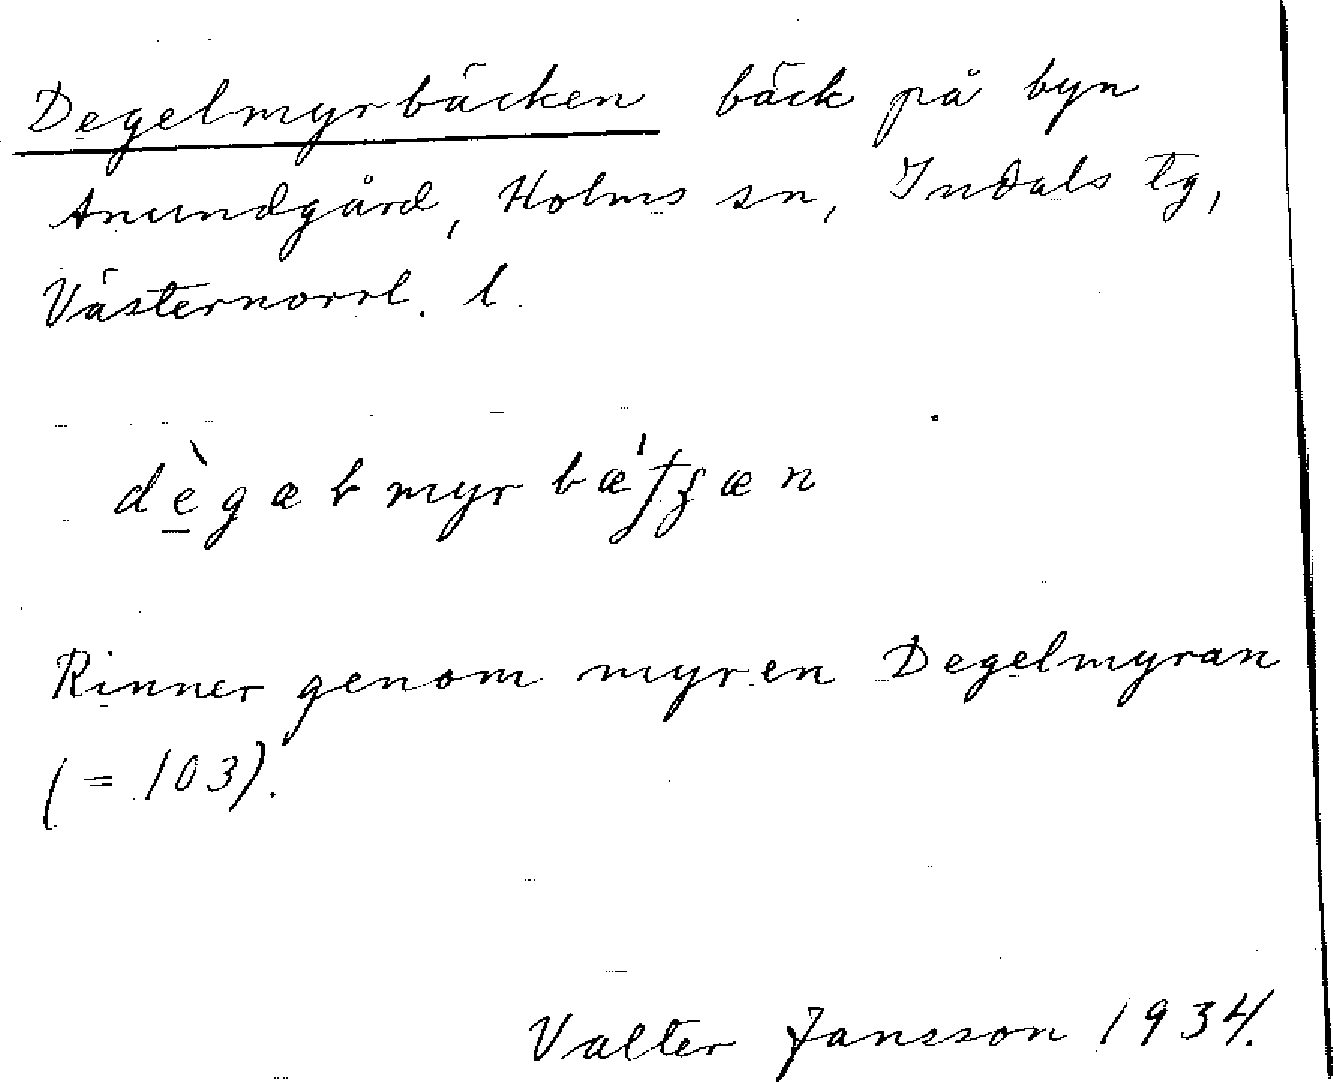 Degelmyrbäcken bäck på byn
Anundgård, Holms sn, Indals tg,
Västernorrl. l.
dègæƚmyrbæ'tʃæn
Rinner genom myren Degelmyran
(= 103).
Valter Jansson 1934.